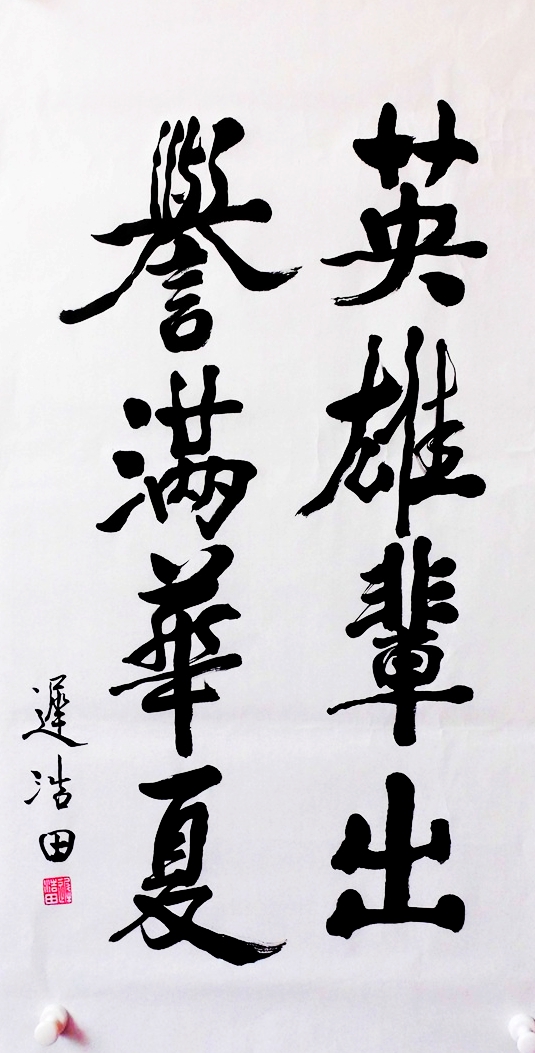 英雄輩出
譽滿華夏
遲浩田